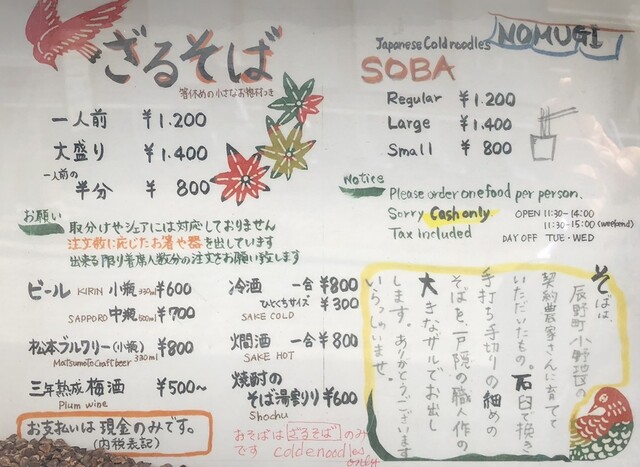 ざるそば
箸休めの小さなお惣菜つき
一人前 ¥1.200
大盛り ¥1.400
一人前の
半分 ¥ 800
お願い
取分けやシェアには対応しておりません
注文数に応じたお箸や器を出しています
出来る限り着席人数分の注文をお願い致します
ビール KIRIN 小瓶 330ml ¥600
SAPPORO 中瓶 500ml ¥700
松本ブルワリー(小瓶) ¥800
Matsumoto Craft beer 330ml
三年熟成 梅酒 ¥500~
Plum wine
お支払いは現金のみです。
(内税表記)
冷酒 一合 ¥800
ひとくちサイズ ¥300
SAKE COLD
燗酒 一合 ¥800
SAKE HOT
焼酎の
そば湯割り ¥600
Shochu
おそばは ざるそば のみ
です cold noodles
only
NOMUGI
Japanese Cold noodles
SOBA
Regular ¥1.200
Large ¥1.400
Small ¥ 800
Notice
Please order one food per person.
Sorry Cash only
Tax Included
OPEN 11:30-14:00
11:30-15:00 (weekend)
DAY OFF TUE・WED
そばは、
辰野町小野地区の
契約農家さんに育てて
いただいたもの。石臼で挽き
手打ち手切りの細めの
そばを、戸隠の職人作の
大きなザルでお出し
します。ありがとうございます
いらっしゃいませ。